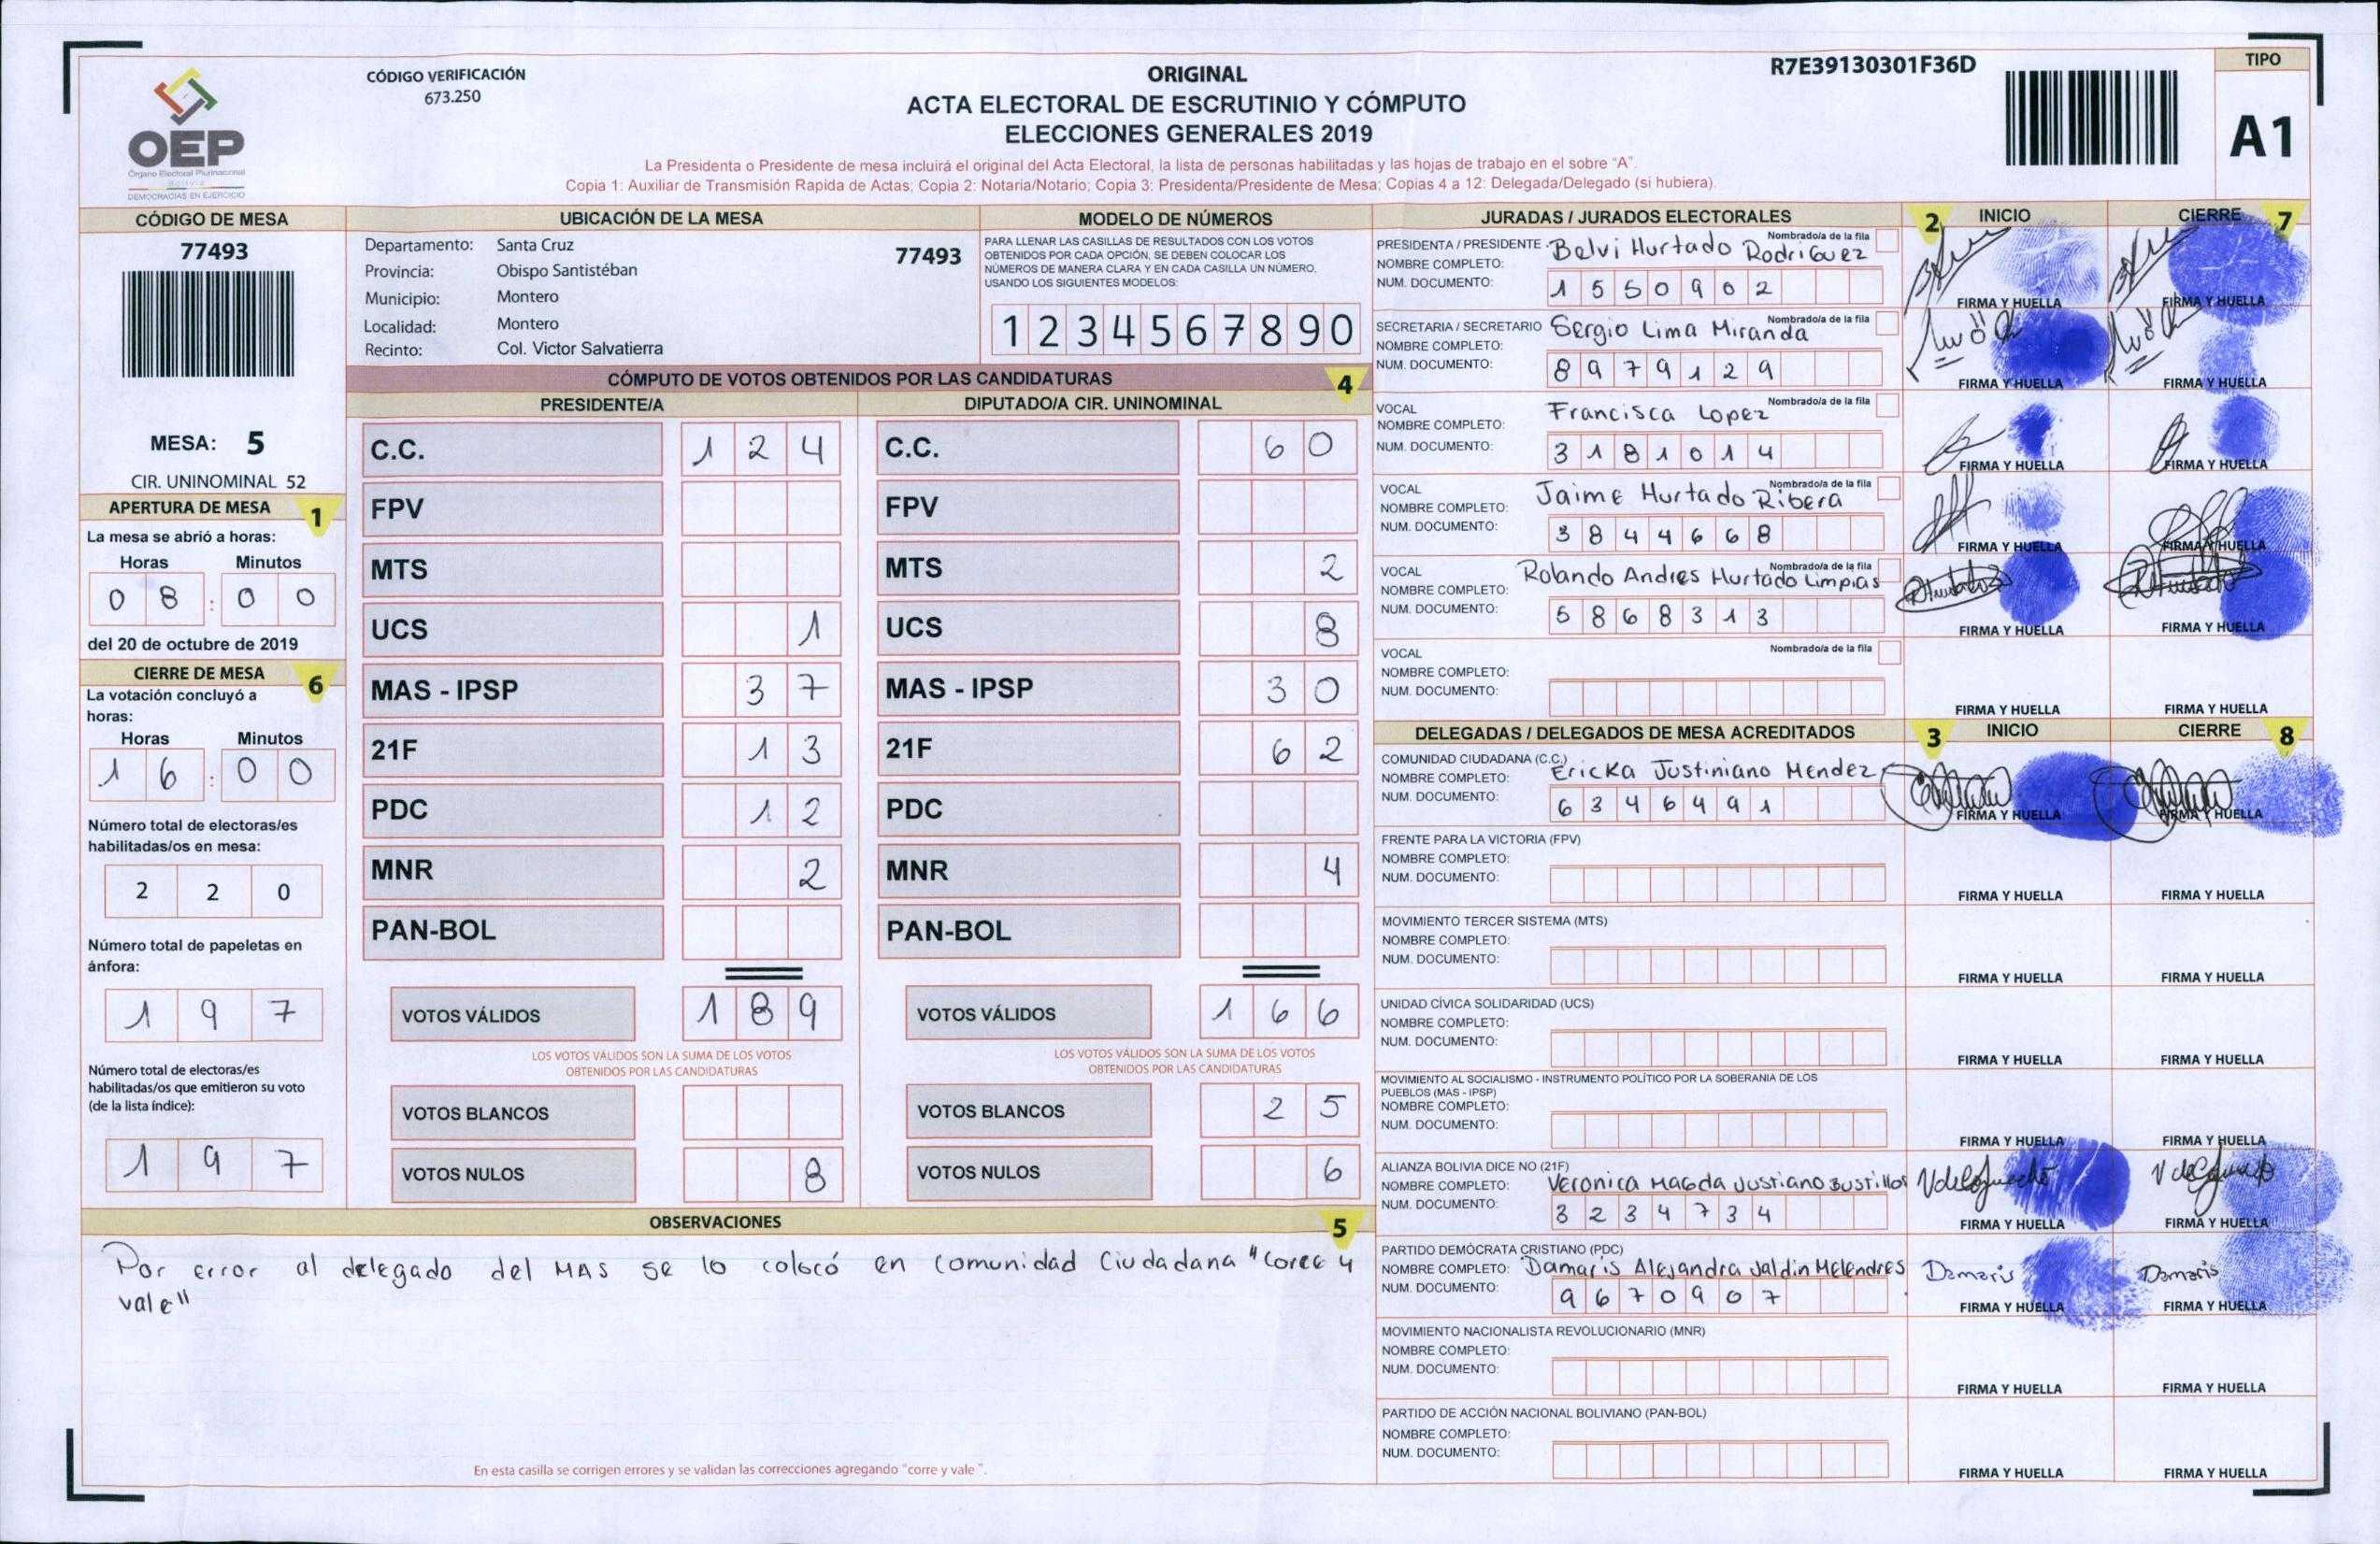 CÓDIGO VERIFICACIÓN
673.250
OEP
Órgano Electoral Plurinacional
Bolivia
DEMOCRACIAS EN EJERCICIO
ORIGINAL
ACTA ELECTORAL DE ESCRUTINIO Y CÓMPUTO
ELECCIONES GENERALES 2019
La Presidenta o Presidente de mesa incluirá el original del Acta Electoral, la lista de personas habilitadas y las hojas de trabajo en el sobre "A".
Copia 1: Auxiliar de Transmisión Rapida de Actas; Copia 2: Notaria/Notario; Copia 3: Presidenta/Presidente de Mesa; Copias 4 a 12: Delegada/Delegado (si hubiera).
R7E39130301F36D
TIPO
A1
CÓDIGO DE MESA
77493
MESA: 5
CIR. UNINOMINAL 52
APERTURA DE MESA 1
La mesa se abrió a horas:
Horas Minutos
0 8 : 0 0
del 20 de octubre de 2019
CIERRE DE MESA 6
La votación concluyó a
horas:
Horas Minutos
1 6 : 0 0
Número total de electoras/es
habilitadas/os en mesa:
2 2 0
Número total de papeletas en
ánfora:
1 9 7
Número total de electoras/es
habilitadas/os que emitieron su voto
(de la lista índice):
1 9 7
UBICACIÓN DE LA MESA
Departamento: Santa Cruz 77493
Provincia: Obispo Santistéban
Municipio: Montero
Localidad: Montero
Recinto: Col. Victor Salvatierra
MODELO DE NÚMEROS
PARA LLENAR LAS CASILLAS DE RESULTADOS CON LOS VOTOS
OBTENIDOS POR CADA OPCIÓN, SE DEBEN COLOCAR LOS
NÚMEROS DE MANERA CLARA Y EN CADA CASILLA UN NÚMERO,
USANDO LOS SIGUIENTES MODELOS:
1 2 3 4 5 6 7 8 9 0
CÓMPUTO DE VOTOS OBTENIDOS POR LAS CANDIDATURAS 4
PRESIDENTE/A
C.C. 1 2 4
FPV
MTS
UCS 1
MAS - IPSP 3 7
21F 1 3
PDC 1 2
MNR 2
PAN-BOL
VOTOS VÁLIDOS 1 8 9
LOS VOTOS VÁLIDOS SON LA SUMA DE LOS VOTOS
OBTENIDOS POR LAS CANDIDATURAS
VOTOS BLANCOS
VOTOS NULOS 8
DIPUTADO/A CIR. UNINOMINAL
C.C. 6 0
FPV
MTS 2
UCS 8
MAS - IPSP 3 0
21F 6 2
PDC
MNR 4
PAN-BOL
VOTOS VÁLIDOS 1 6 6
LOS VOTOS VÁLIDOS SON LA SUMA DE LOS VOTOS
OBTENIDOS POR LAS CANDIDATURAS
VOTOS BLANCOS 2 5
VOTOS NULOS 6
OBSERVACIONES 5
Por error al delegado del MAS se lo colocó en comunidad Ciudadana "Corre y
vale"
En esta casilla se corrigen errores y se validan las correcciones agregando "corre y vale ".
JURADAS / JURADOS ELECTORALES 2 INICIO CIERRE 7
PRESIDENTA / PRESIDENTE Nombrado/a de la fila
NOMBRE COMPLETO: Belvi Hurtado Rodriguez
NUM. DOCUMENTO: 1 5 5 0 9 0 2
FIRMA Y HUELLA FIRMA Y HUELLA
SECRETARIA / SECRETARIO Nombrado/a de la fila
NOMBRE COMPLETO: Sergio Lima Miranda
NUM. DOCUMENTO: 8 9 7 9 1 2 9
FIRMA Y HUELLA FIRMA Y HUELLA
VOCAL Nombrado/a de la fila
NOMBRE COMPLETO: Francisca Lopez
NUM. DOCUMENTO: 3 1 8 1 0 1 4
FIRMA Y HUELLA FIRMA Y HUELLA
VOCAL Nombrado/a de la fila
NOMBRE COMPLETO: Jaime Hurtado Ribera
NUM. DOCUMENTO: 3 8 4 4 6 6 8
FIRMA Y HUELLA FIRMA Y HUELLA
VOCAL Nombrado/a de la fila
NOMBRE COMPLETO: Rolando Andres Hurtado Limpias
NUM. DOCUMENTO: 5 8 6 8 3 1 3
FIRMA Y HUELLA FIRMA Y HUELLA
VOCAL Nombrado/a de la fila
NOMBRE COMPLETO:
NUM. DOCUMENTO:
FIRMA Y HUELLA FIRMA Y HUELLA
DELEGADAS / DELEGADOS DE MESA ACREDITADOS 3 INICIO CIERRE 8
COMUNIDAD CIUDADANA (C.C.)
NOMBRE COMPLETO: Ericka Justiniano Mendez
NUM. DOCUMENTO: 6 3 4 6 4 9 1
FIRMA Y HUELLA FIRMA Y HUELLA
FRENTE PARA LA VICTORIA (FPV)
NOMBRE COMPLETO:
NUM. DOCUMENTO:
FIRMA Y HUELLA FIRMA Y HUELLA
MOVIMIENTO TERCER SISTEMA (MTS)
NOMBRE COMPLETO:
NUM. DOCUMENTO:
FIRMA Y HUELLA FIRMA Y HUELLA
UNIDAD CÍVICA SOLIDARIDAD (UCS)
NOMBRE COMPLETO:
NUM. DOCUMENTO:
FIRMA Y HUELLA FIRMA Y HUELLA
MOVIMIENTO AL SOCIALISMO - INSTRUMENTO POLÍTICO POR LA SOBERANIA DE LOS
PUEBLOS (MAS - IPSP)
NOMBRE COMPLETO:
NUM. DOCUMENTO:
FIRMA Y HUELLA FIRMA Y HUELLA
ALIANZA BOLIVIA DICE NO (21F)
NOMBRE COMPLETO: Veronica Magda Justiano Bustillos
NUM. DOCUMENTO: 3 2 3 4 7 3 4
FIRMA Y HUELLA FIRMA Y HUELLA
PARTIDO DEMÓCRATA CRISTIANO (PDC)
NOMBRE COMPLETO: Damaris Alejandra Jaldin Melendres Damaris Damaris
NUM. DOCUMENTO: 9 6 7 0 9 0 7
FIRMA Y HUELLA FIRMA Y HUELLA
MOVIMIENTO NACIONALISTA REVOLUCIONARIO (MNR)
NOMBRE COMPLETO:
NUM. DOCUMENTO:
FIRMA Y HUELLA FIRMA Y HUELLA
PARTIDO DE ACCIÓN NACIONAL BOLIVIANO (PAN-BOL)
NOMBRE COMPLETO:
NUM. DOCUMENTO:
FIRMA Y HUELLA FIRMA Y HUELLA